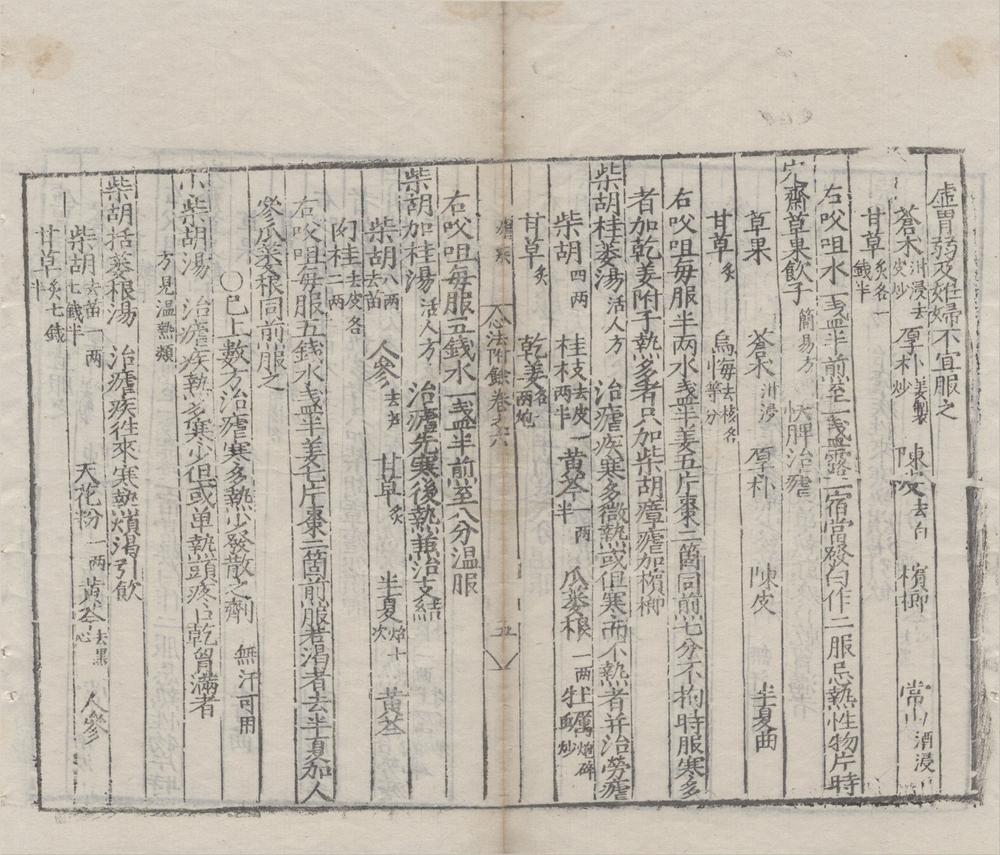 虛胃弱及妊婦不宜服之
蒼朮泔浸去皮炒 厚朴姜製炒 陳皮去白 檳榔 常山酒浸
甘草炙各一錢半
右㕮咀水二盞半煎至一盞露一宿當發日作二服忌熱性物片時
草果飲子簡易方 快脾治瘧
草果 蒼朮泔浸 厚朴 陳皮 半夏曲
甘草炙 烏梅去核各等分
右㕮咀每服半兩水二盞半姜五片棗二箇同煎七分不拘時服寒多
者加乾姜附子熱多者只加柴胡瘴瘧加檳榔
柴胡桂姜湯活人方 治瘧疾寒多微熱或但寒而不熱者并治勞瘧
柴胡四兩 桂枝去皮一兩半 黃芩一兩半 瓜蔞根一兩 牡蠣煅碎炒
甘草炙 乾姜炮各一兩
右㕮咀每服五錢水一盞半煎至八分溫服
瘧寒 心法附餘卷之六 五
柴胡加桂湯活人方 治瘧先寒後熱兼治支結
柴胡八兩去苗 人參去芦 甘草炙 半夏焠十次 黃芩
肉桂去皮各二兩
右㕮咀每服五錢水一盞半姜七片棗二箇煎服若渴者去半夏加人
參瓜蔞根同前服之
○已上數方治瘧寒多熱少發散之劑 無汗可用
小柴胡湯 治瘧疾熱多寒少但或單熱頭疼口乾胷滿者
方見溫熱類
柴胡括蔞根湯 治瘧疾往來寒熱煩渴引飲
柴胡去苗一兩七錢半 天花粉一兩 黃芩去黑心 人參
甘草炙七錢半